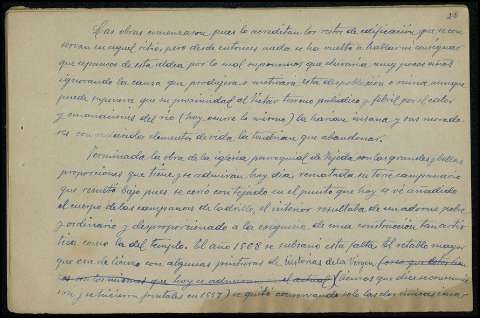 28
Las obras comenzaron pues lo acreditan los restos de edificación que se con
servan en aquel sitio, pero desde entonces nada se ha vuelto a hablar ni consignar
que expresase de esta aldea por lo cual suponemos que duraria muy pocos años
ignorando la causa que produjera o motivara esta despoblación o ruina aunque
puede suponerse que su proximidad al Tietar terreno paludico y febril por el calor
y emanaciones del rio (hoy ocurre lo mismo) la harian insana y sus morado
res con  elementos de vida la tendrian que abandonar.
Terminada la obra de la iglesia parroquial de Tejeda con las grandes y bellas
proporciones que tiene y se admiran hoy dia, rematada su torre campanario
que resultó bajo pues se cerró con tejado en el punto que hoy se vé añadido
el cuerpo de las campanas de ladrillo, el interior resultaba de un adorno pobre
y ordinario y desproporcionado a la exigencia de una construcción tan artis
tica como la del templo. El año 1568 se subsanó esta falta. El retablo mayor
que era de lienzo con algunas pinturas de historias de la Virgen
(lienzos que dice
 en 1557) se quitó conservando solo las dos